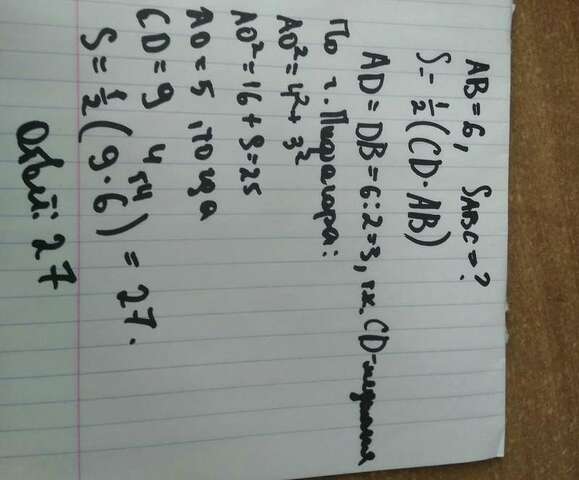 AB=6, SABC=?
S= 1/2 (CD·AB)
AD=DB=6:2=3, т.к. CD-медиана
По т. Пифагора:
AO²=4²+3²
AO²=16+9=25
AO=5, тогда
CD=9 4+5
S=1/2(9·6)=27.
Ответ: 27